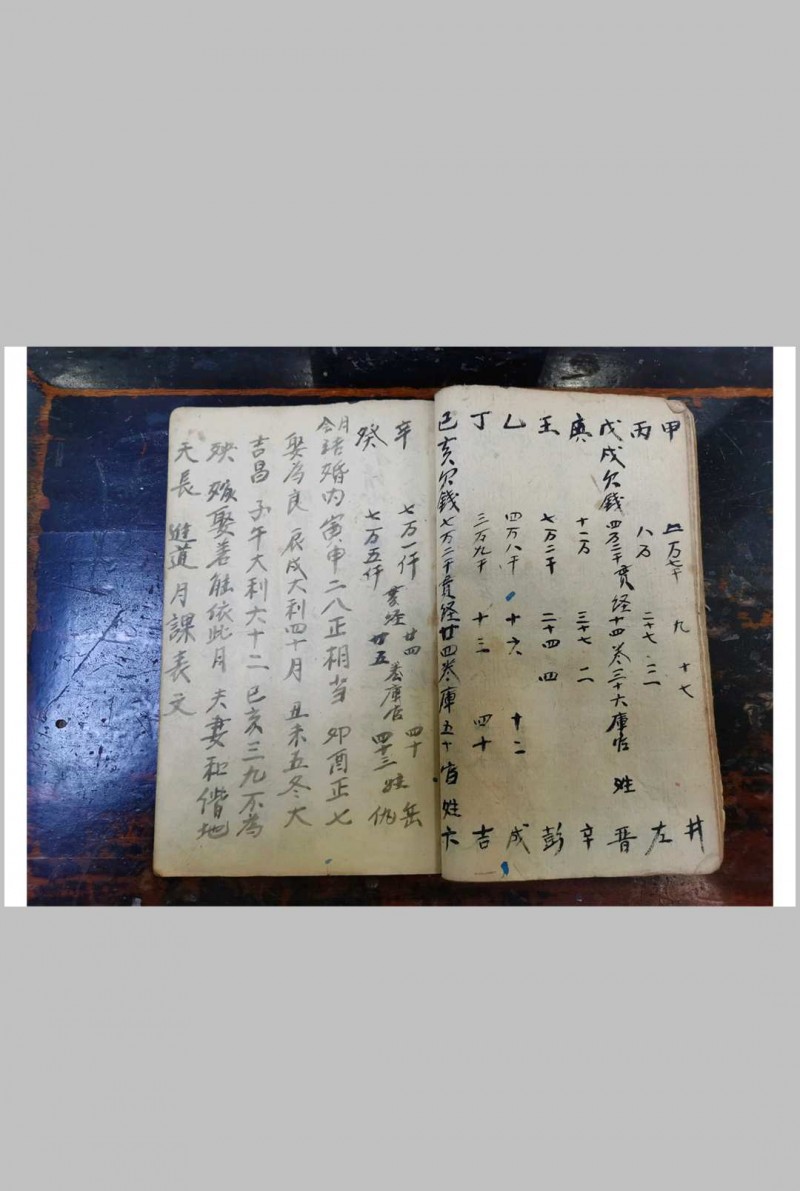 甲 五万七千 九 十七 井
丙 八万 二十七 二 左
戊戌欠錢四万二千貫経十四卷三十六庫官 姓 晋
庚 十一万 三十七 二 辛
壬 七万二千 二十四 四 彭
乙 四万八千 十六 十二 成
丁 三万九千 十三 四十 吉
己亥欠錢七万二千貫経廿四卷庫五十官姓卞
辛 七万一仟 看経 廿四 卷庫官 四十 岳
癸 七万五仟 廿五 四十三 姓 仇
合月結婚内寅申二八正相当 卯酉正七
娶為良 辰戌大利四十月 丑未五冬大
吉昌 子午大利六十二 巳亥三九不為
殃 嫁娶善能依此月 夫妻和偕地
天長 進道月課表文